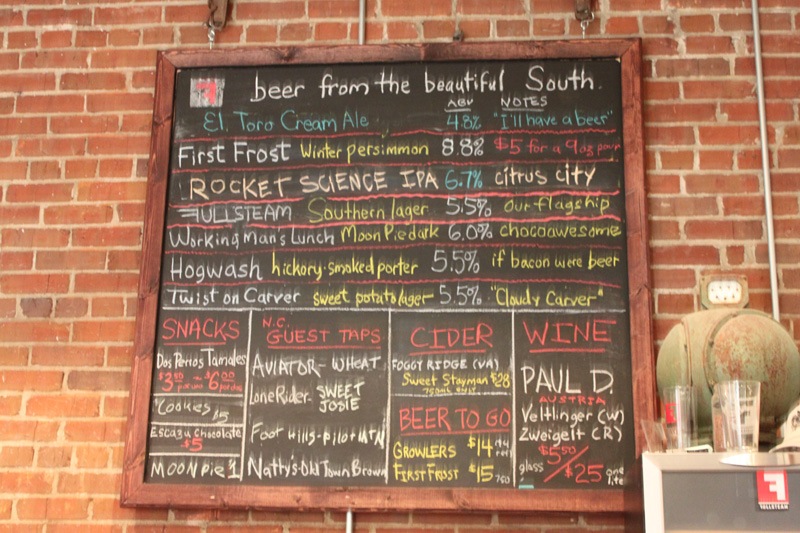 beer from the beautiful South.
ABV NOTES
El Toro Cream Ale 4.8% "I'll have a beer"
First Frost Winter persimmon 8.8% $5 for a 9oz pour
ROCKET SCIENCE IPA 6.7% citrus city
FULLSTEAM Southern lager 5.5% our flagship
Working Man's Lunch Moon Pie dark 6.0% chocoawesome
Hogwash hickory-smoked porter 5.5% if bacon were beer
Twist on Carver sweet potato lager 5.5% "Cloudy Carver"
SNACKS
Dos Perros Tamales
$3.50 $6.00
Cookies
Escazu Chocolate
$5
MOON Pie $1
N.C.
GUEST TAPS
AVIATOR - WHEAT
LoneRider - SWEET
JOSIE
Foothills - Pilot MTN
Natty's - Old Town Brown
CIDER
FOGGY RIDGE (VA)
Sweet Stayman $28
750ML
BEER TO GO
GROWLERS $14
FIRST FROST $15 750
WINE
PAUL D.
AUSTRIA
Veltlinger (W)
Zweigelt (R)
$5.50
glass / $25 one
litre
F
FULLSTEAM